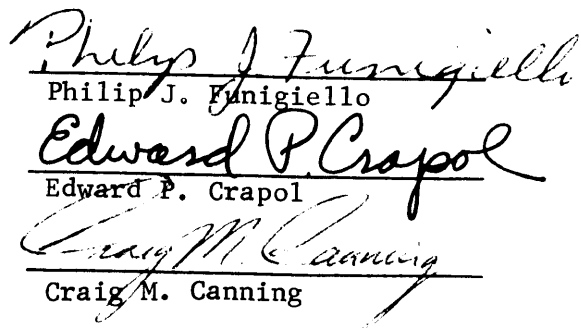 Philip J. Funigiello
Philip J. Funigiello
Edward P. Crapol
Edward P. Crapol
Craig M. Canning
Craig M. Canning